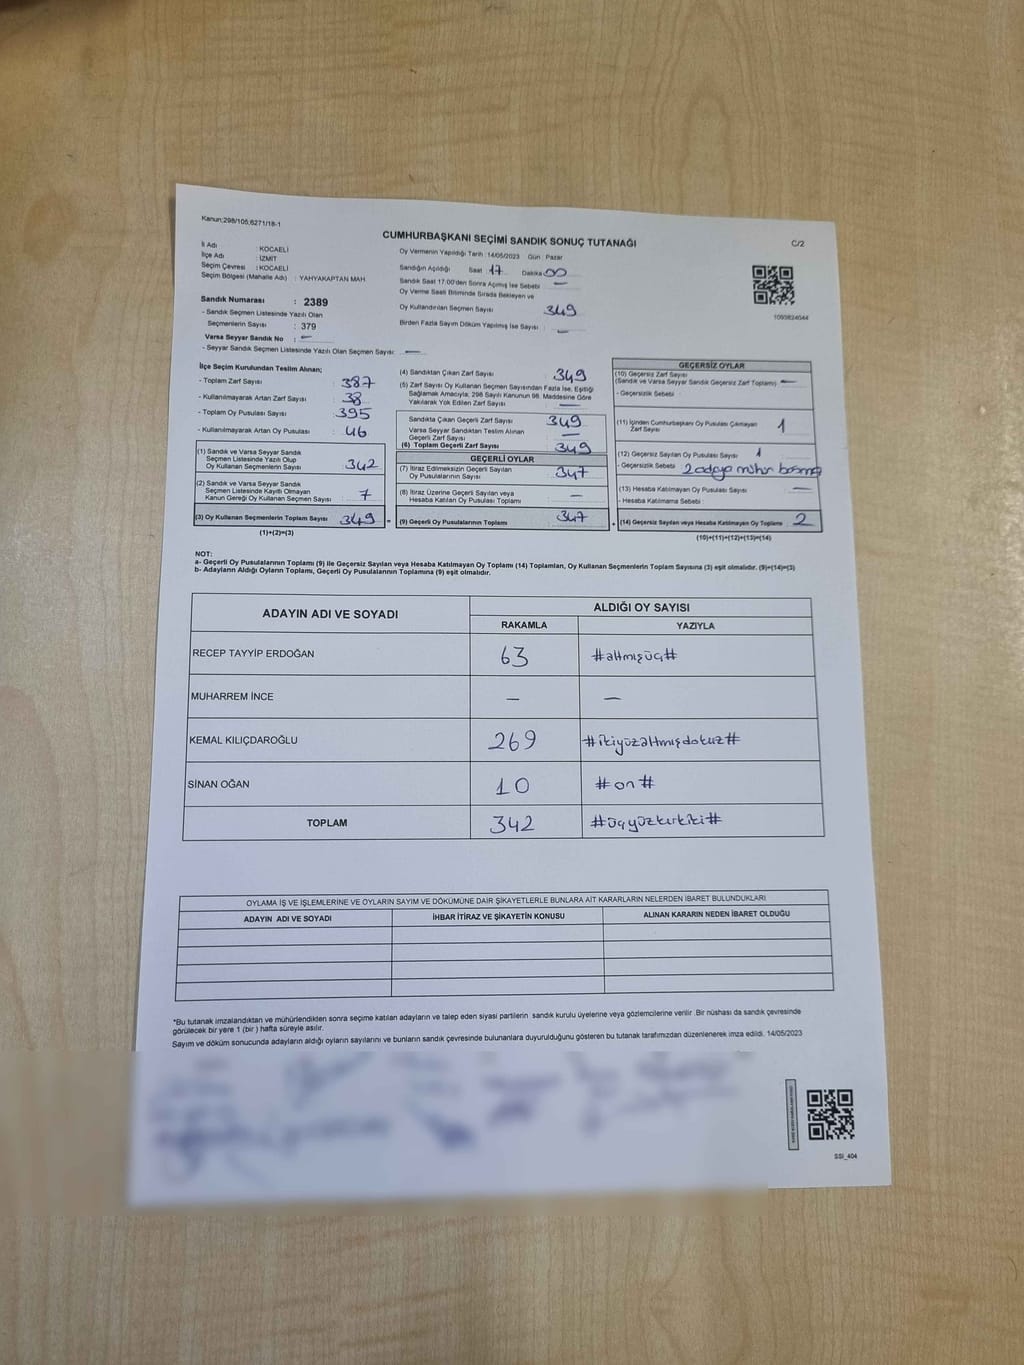 Kanun:298/105;6271/18-1
CUMHURBAŞKANI SEÇİMİ SANDIK SONUÇ TUTANAĞI
C/2
İl Adı : KOCAELİ
İlçe Adı : İZMİT
Seçim Çevresi : KOCAELİ
Seçim Bölgesi (Mahalle Adı) : YAHYAKAPTAN MAH.
Sandık Numarası : 2389
- Sandık Seçmen Listesinde Yazılı Olan
Seçmenlerin Sayısı : 379
Varsa Seyyar Sandık No : —
- Seyyar Sandık Seçmen Listesinde Yazılı Olan Seçmen Sayısı : —
Oy Vermenin Yapıldığı Tarih :14/05/2023 Gün : Pazar
Sandığın Açıldığı Saat : 17 Dakika : 00
Sandık Saat 17:00'den Sonra Açılmış İse Sebebi : —
Oy Verme Saati Bitiminde Sırada Bekleyen ve
Oy Kullandırılan Seçmen Sayısı : 349
Birden Fazla Sayım Döküm Yapılmış İse Sayısı : —
1093824044
İlçe Seçim Kurulundan Teslim Alınan;
- Toplam Zarf Sayısı : 387
- Kullanılmayarak Artan Zarf Sayısı : 38
- Toplam Oy Pusulası Sayısı : 395
- Kullanılmayarak Artan Oy Pusulası : 46
(1) Sandık ve Varsa Seyyar Sandık
Seçmen Listesinde Yazılı Olup
Oy Kullanan Seçmenlerin Sayısı : 342
(2) Sandık ve Varsa Seyyar Sandık
Seçmen Listesinde Kayıtlı Olmayan
Kanun Gereği Oy Kullanan Seçmen Sayısı : 7
(3) Oy Kullanan Seçmenlerin Toplam Sayısı : 349
(1)+(2)=(3)
(4) Sandıktan Çıkan Zarf Sayısı : 349
(5) Zarf Sayısı Oy Kullanan Seçmen Sayısından Fazla İse, Eşitliği
Sağlamak Amacıyla, 298 Sayılı Kanunun 98. Maddesine Göre
Yakılarak Yok Edilen Zarf Sayısı : —
Sandıkta Çıkan Geçerli Zarf Sayısı : 349
Varsa Seyyar Sandıktan Teslim Alınan
Geçerli Zarf Sayısı : —
(6) Toplam Geçerli Zarf Sayısı : 349
GEÇERLİ OYLAR
(7) İtiraz Edilmeksizin Geçerli Sayılan
Oy Pusulalarının Sayısı : 347
(8) İtiraz Üzerine Geçerli Sayılan veya
Hesaba Katılan Oy Pusulası Toplamı : —
=
(9) Geçerli Oy Pusulalarının Toplamı : 347
+
GEÇERSİZ OYLAR
(10) Geçersiz Zarf Sayısı : —
(Sandık ve Varsa Seyyar Sandık Geçersiz Zarf Toplamı)
- Geçersizlik Sebebi :
(11) İçinden Cumhurbaşkanı Oy Pusulası Çıkmayan
Zarf Sayısı : 1
(12) Geçersiz Sayılan Oy Pusulası Sayısı : 1
- Geçersizlik Sebebi : 2 adaya mühür basma
(13) Hesaba Katılmayan Oy Pusulası Sayısı : —
- Hesaba Katılmama Sebebi :
(14) Geçersiz Sayılan veya Hesaba Katılmayan Oy Toplamı : 2
(10)+(11)+(12)+(13)=(14)
NOT:
a- Geçerli Oy Pusulalarının Toplamı (9) ile Geçersiz Sayılan veya Hesaba Katılmayan Oy Toplamı (14) Toplamları, Oy Kullanan Seçmenlerin Toplam Sayısına (3) eşit olmalıdır. (9)+(14)=(3)
b- Adayların Aldığı Oyların Toplamı, Geçerli Oy Pusulalarının Toplamına (9) eşit olmalıdır.
ADAYIN ADI VE SOYADI
ALDIĞI OY SAYISI
RAKAMLA YAZIYLA
RECEP TAYYİP ERDOĞAN 63 #altmışüç#
MUHARREM İNCE — —
KEMAL KILIÇDAROĞLU 269 #ikiyüzaltmışdokuz#
SİNAN OĞAN 10 #on#
TOPLAM 342 #üçyüzkırkiki#
OYLAMA İŞ VE İŞLEMLERİNE VE OYLARIN SAYIM VE DÖKÜMÜNE DAİR ŞİKAYETLERLE BUNLARA AİT KARARLARIN NELERDEN İBARET BULUNDUKLARI
ADAYIN ADI VE SOYADI İHBAR İTİRAZ VE ŞİKAYETİN KONUSU ALINAN KARARIN NEDEN İBARET OLDUĞU
*Bu tutanak imzalandıktan ve mühürlendikten sonra seçime katılan adayların ve talep eden siyasi partilerin sandık kurulu üyelerine veya gözlemcilerine verilir. Bir nüshası da sandık çevresinde
görülecek bir yere 1 (bir ) hafta süreyle asılır.
Sayım ve döküm sonucunda adayların aldığı oyların sayılarını ve bunların sandık çevresinde bulunanlara duyurulduğunu gösteren bu tutanak tarafımızdan düzenlenerek imza edildi. 14/05/2023
SSI_404